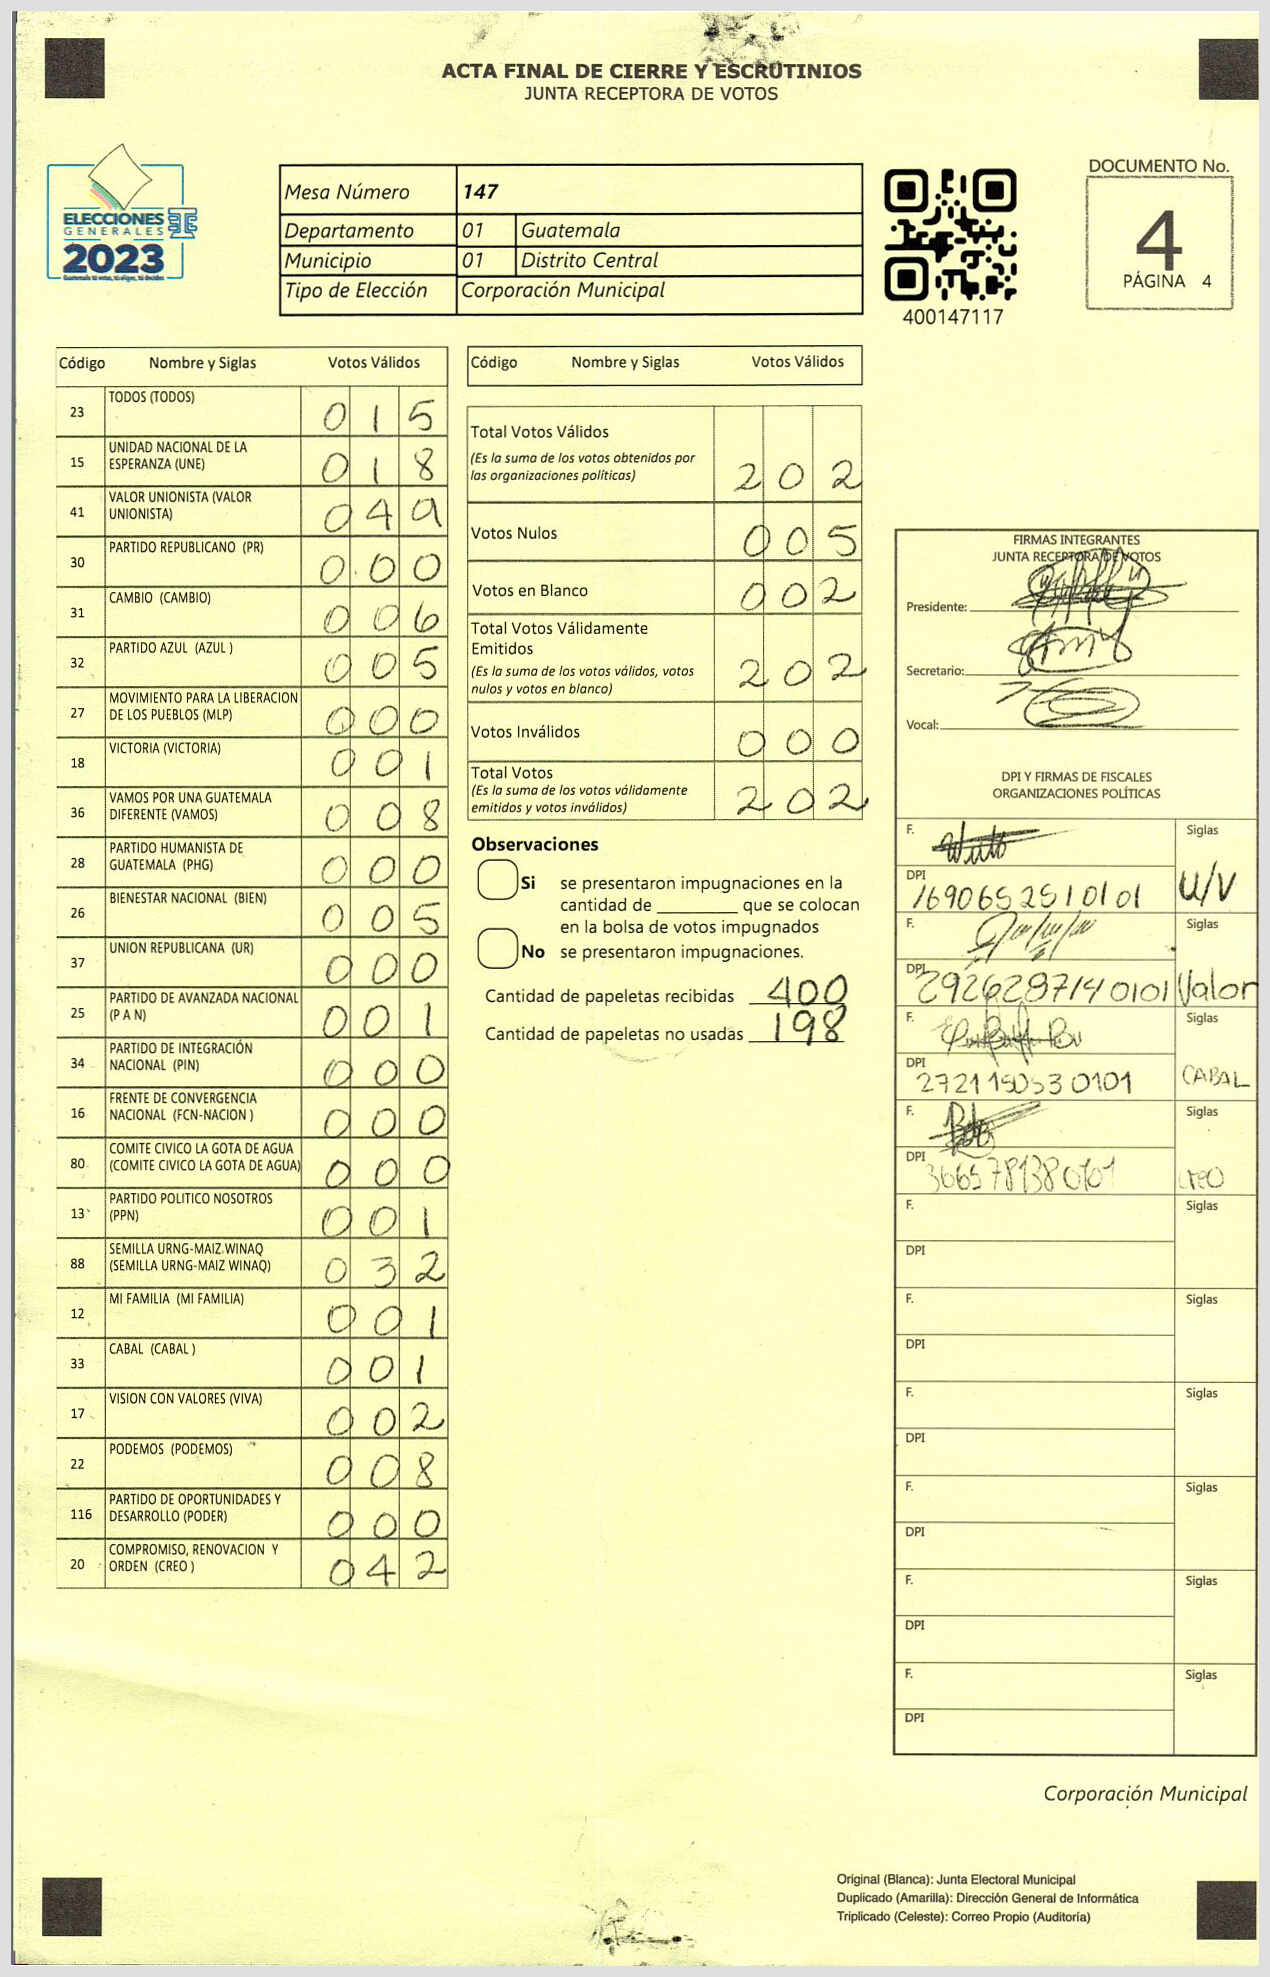 ACTA FINAL DE CIERRE Y ESCRUTINIOS
JUNTA RECEPTORA DE VOTOS
ELECCIONES
GENERALES
2023
Mesa Número 147
Departamento 01 Guatemala
Municipio 01 Distrito Central
Tipo de Elección Corporación Municipal
400147117
DOCUMENTO No.
4
PÁGINA 4
Código Nombre y Siglas Votos Válidos
23 TODOS (TODOS) 0 1 5
15 UNIDAD NACIONAL DE LA
ESPERANZA (UNE) 0 1 8
41 VALOR UNIONISTA (VALOR
UNIONISTA) 0 4 9
30 PARTIDO REPUBLICANO (PR) 0 0 0
31 CAMBIO (CAMBIO) 0 0 6
32 PARTIDO AZUL (AZUL ) 0 0 5
27 MOVIMIENTO PARA LA LIBERACION
DE LOS PUEBLOS (MLP) 0 0 0
18 VICTORIA (VICTORIA) 0 0 1
36 VAMOS POR UNA GUATEMALA
DIFERENTE (VAMOS) 0 0 8
28 PARTIDO HUMANISTA DE
GUATEMALA (PHG) 0 0 0
26 BIENESTAR NACIONAL (BIEN) 0 0 5
37 UNION REPUBLICANA (UR) 0 0 0
25 PARTIDO DE AVANZADA NACIONAL
(P A N) 0 0 1
34 PARTIDO DE INTEGRACIÓN
NACIONAL (PIN) 0 0 0
16 FRENTE DE CONVERGENCIA
NACIONAL (FCN-NACION ) 0 0 0
80 COMITE CIVICO LA GOTA DE AGUA
(COMITE CIVICO LA GOTA DE AGUA) 0 0 0
13 PARTIDO POLITICO NOSOTROS
(PPN) 0 0 1
88 SEMILLA URNG-MAIZ WINAQ
(SEMILLA URNG-MAIZ WINAQ) 0 3 2
12 MI FAMILIA (MI FAMILIA) 0 0 1
33 CABAL (CABAL ) 0 0 1
17 VISION CON VALORES (VIVA) 0 0 2
22 PODEMOS (PODEMOS) 0 0 8
116 PARTIDO DE OPORTUNIDADES Y
DESARROLLO (PODER) 0 0 0
20 COMPROMISO, RENOVACION Y
ORDEN (CREO ) 0 4 2
Código Nombre y Siglas Votos Válidos
Total Votos Válidos
(Es la suma de los votos obtenidos por
las organizaciones políticas) 2 0 2
Votos Nulos 0 0 5
Votos en Blanco 0 0 2
Total Votos Válidamente
Emitidos
(Es la suma de los votos válidos, votos
nulos y votos en blanco) 2 0 2
Votos Inválidos 0 0 0
Total Votos
(Es la suma de los votos válidamente
emitidos y votos inválidos) 2 0 2
Observaciones
Si se presentaron impugnaciones en la
cantidad de ________ que se colocan
en la bolsa de votos impugnados
No se presentaron impugnaciones.
Cantidad de papeletas recibidas 400
Cantidad de papeletas no usadas 198
FIRMAS INTEGRANTES
JUNTA RECEPTORA DE VOTOS
Presidente:
Secretario:
Vocal:
DPI Y FIRMAS DE FISCALES
ORGANIZACIONES POLÍTICAS
F. Siglas
DPI 1690652510101 U/V
F. Siglas
DPI 2926289140101 Valor
F. Siglas
DPI 2721150530101 CABAL
F. Siglas
DPI 3665781380101 creo
F. Siglas
DPI
F. Siglas
DPI
F. Siglas
DPI
F. Siglas
DPI
F. Siglas
DPI
F. Siglas
DPI
Corporación Municipal
Original (Blanca): Junta Electoral Municipal
Duplicado (Amarilla): Dirección General de Informática
Triplicado (Celeste): Correo Propio (Auditoría)